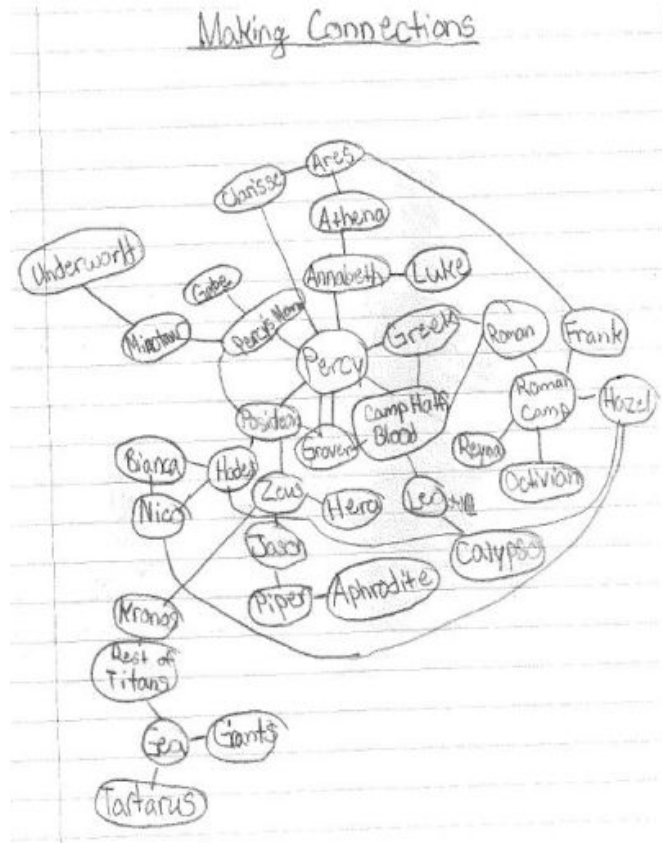 Making Connections
Ares
Clarisse
Athena
Underworlt
Annabeth
Luke
Gabe
Minotaur
Percy's Mom
Greek
Roman
Frank
Percy
Posideon
Camp Half
Blood
Roman
Camp
Hazel
Grover
Reyna
Bianca
Hades
Octivian
Zeus
Hera
Leo
Nico
Jason
Calypso
Piper
Aphrodite
Kronos
Rest of
Titans
Gea
Giants
Tartarus